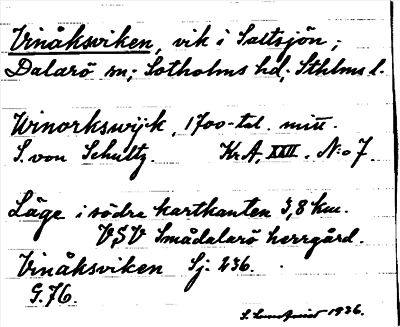 Vinåksviken, vik i Saltsjön;
Dalarö sn; Sotholms hd; Sthlms l.
Winorkswijk, 1700-tal. mitt.
S. von Schultz Kr.A, XXII. N:o 7.
Läge i södra kartkanten 3,8 km.
VSV Smådalarö herrgård.
Vinåksviken Sj. 236.
G.76.
S. 1936.